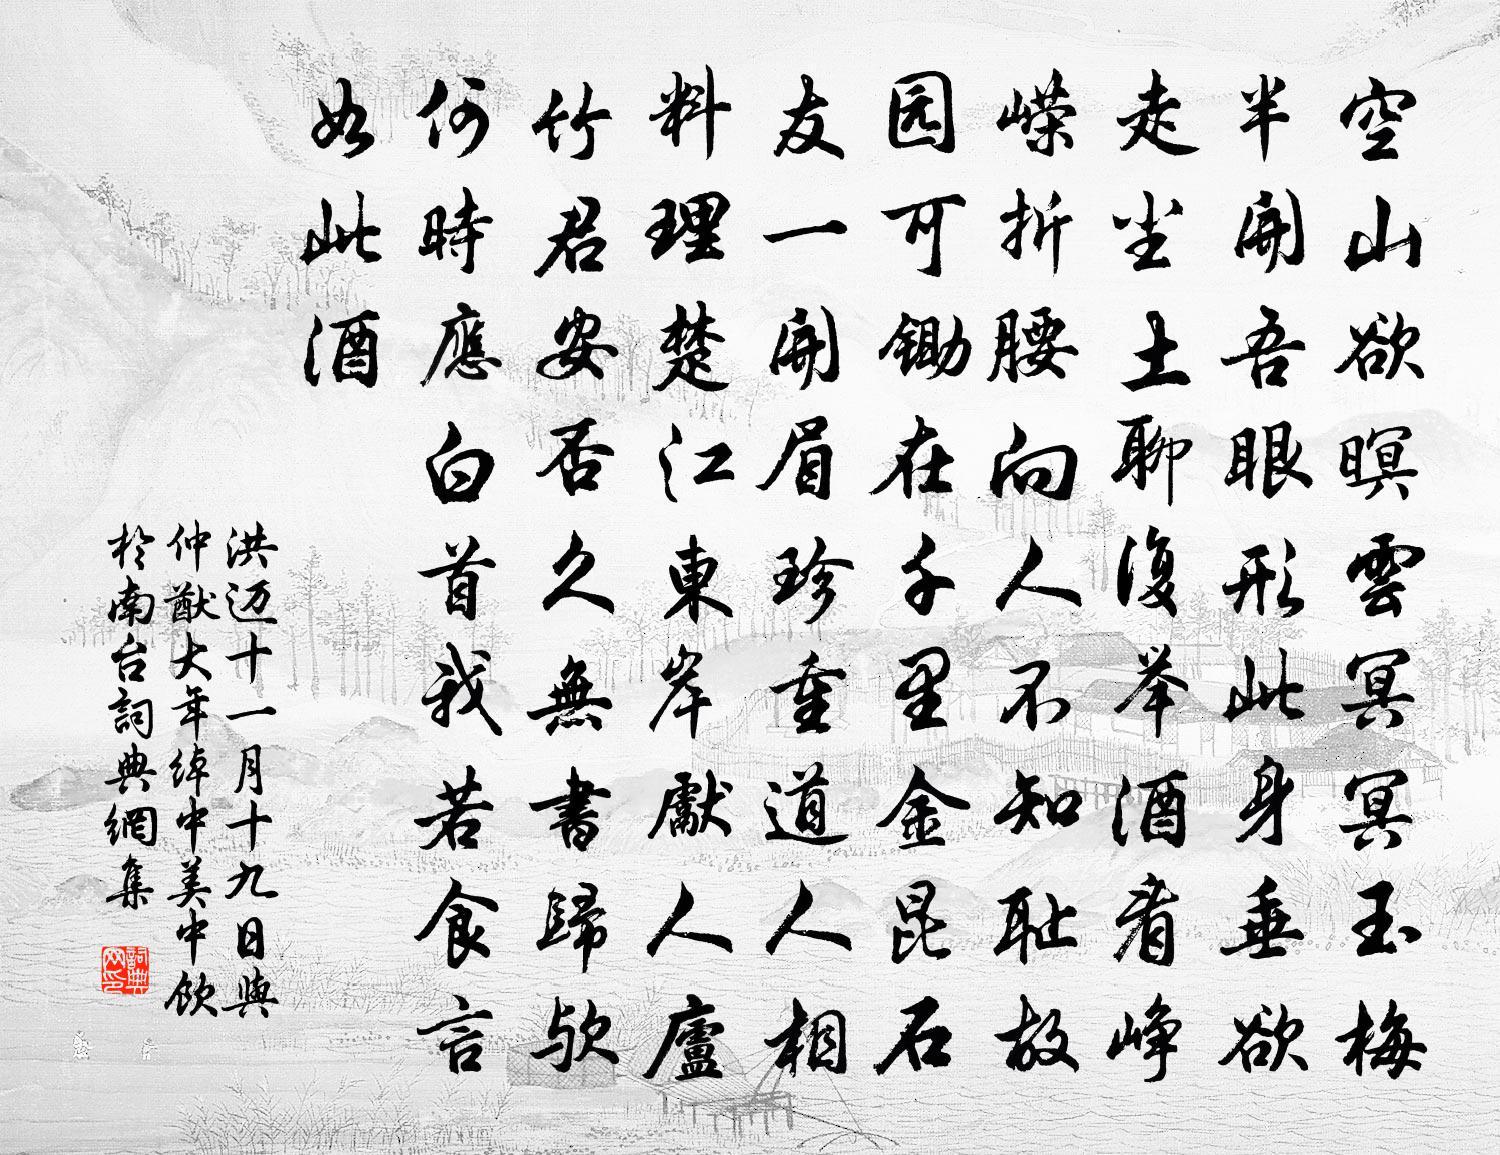 空山欲暝雲冥冥玉梅
半開吾眼形此身垂欲
走尘土聊復举酒看峥
嵘折腰向人不知耻故
园可锄在千里金昆石
友一開眉珍重道人相
料理楚江東岸獻人廬
竹君安否久無書歸欤
何時應白首我若食言
如此酒
洪迈十一月十九日與
仲猷大年綽中美中飲
於南台詞典網集
詞典网印